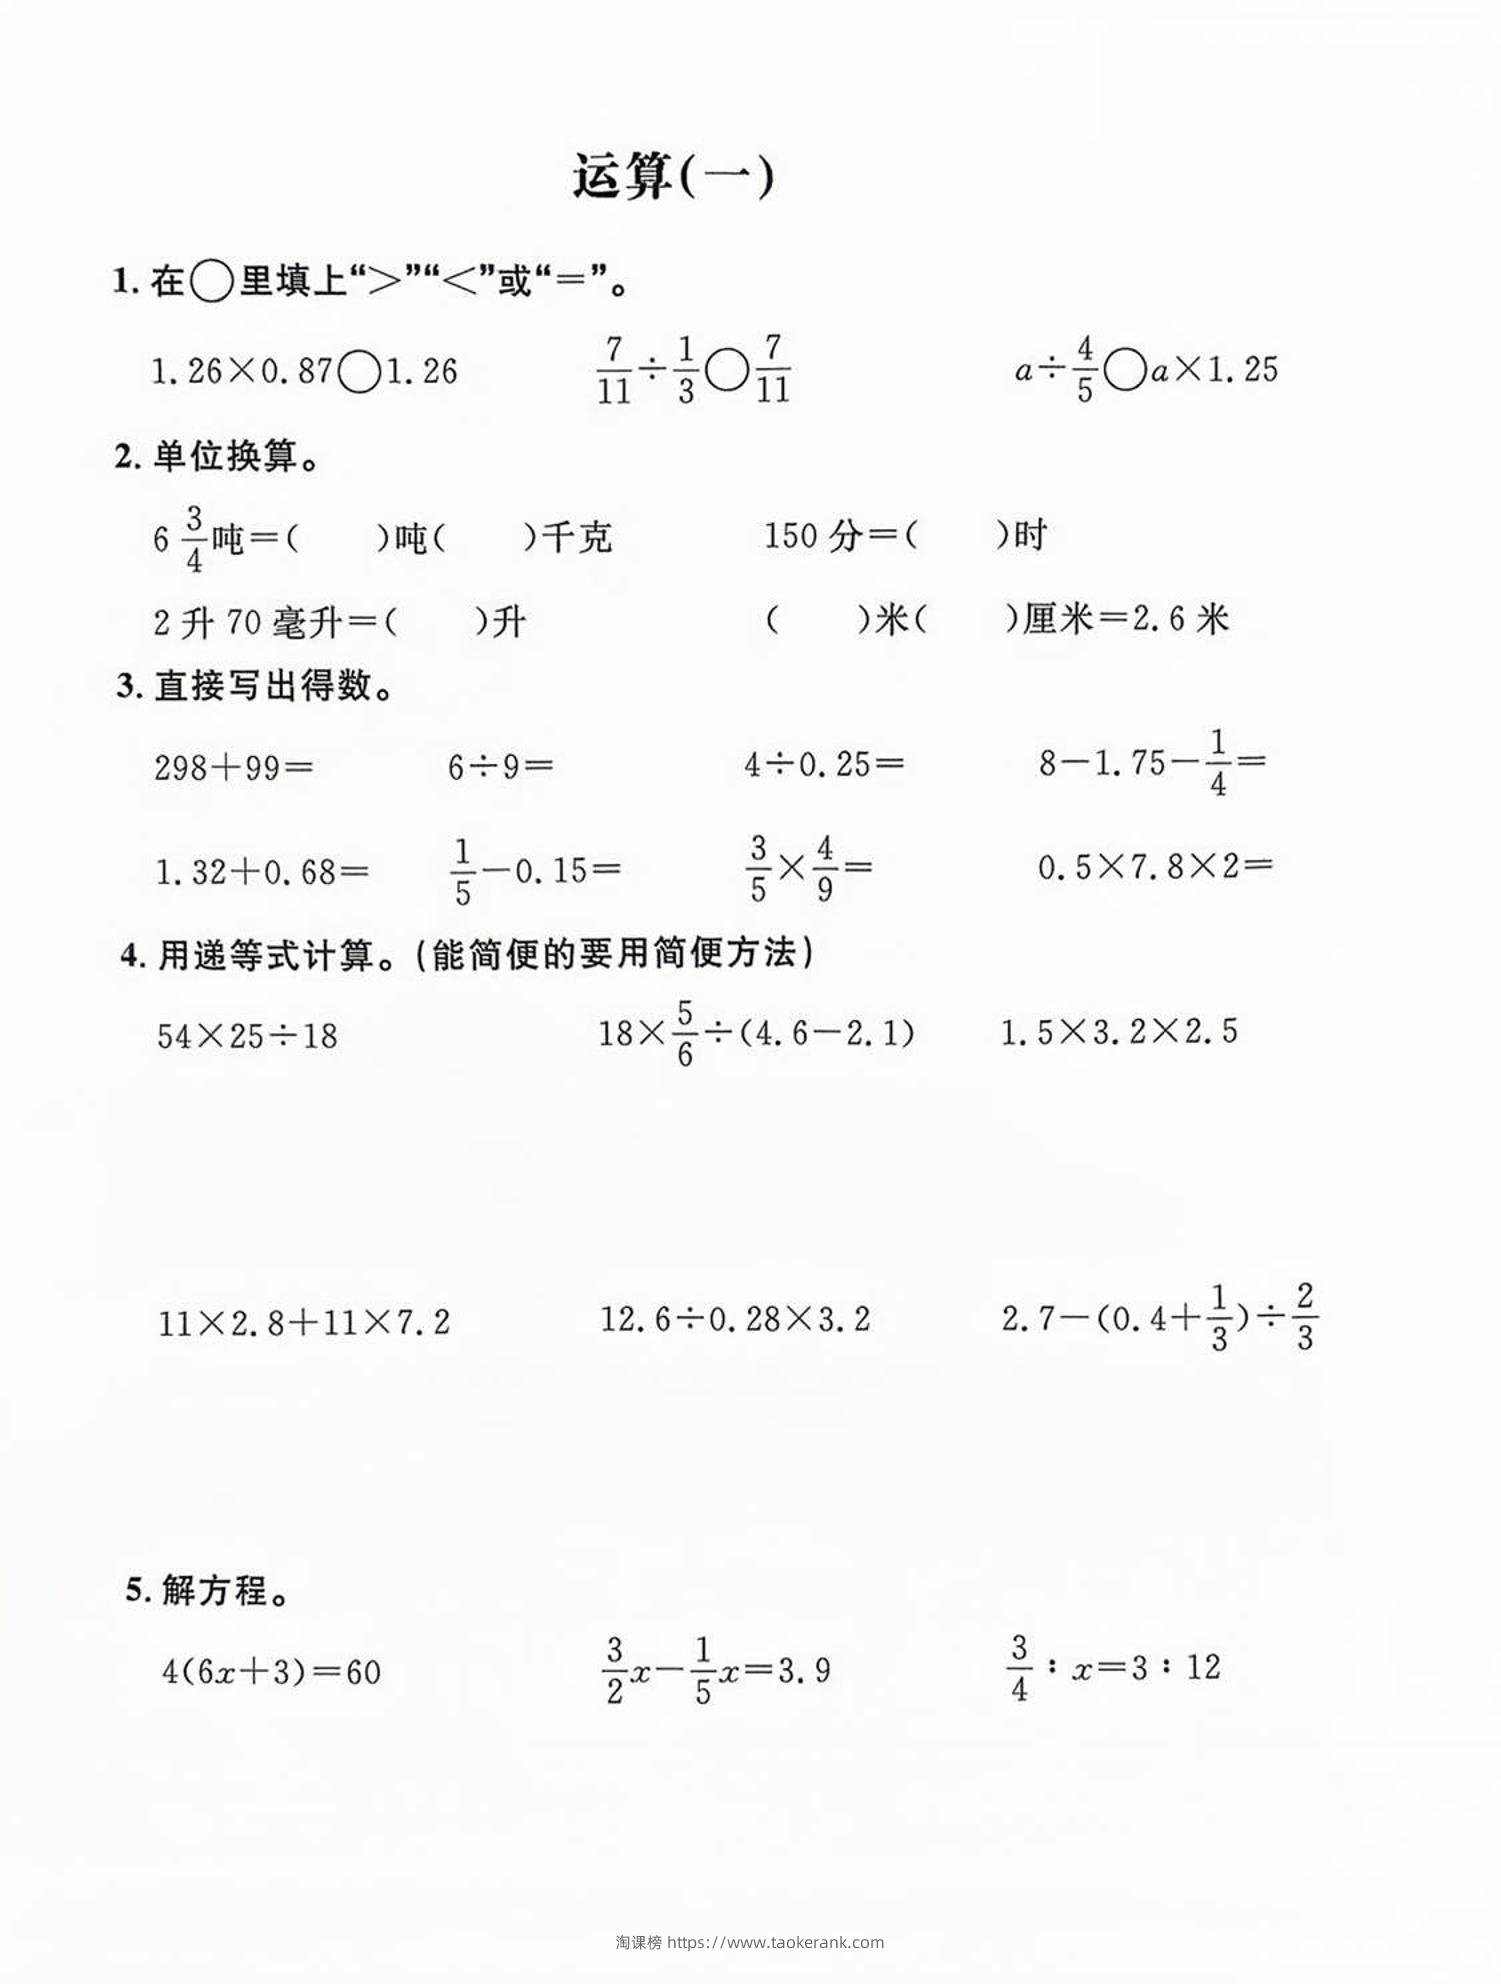 运算(一)
1. 在○里填上“>”“<”或“=”。
1.26×0.87○1.26 7/11÷1/3○7/11 a÷4/5○a×1.25
2. 单位换算。
6 3/4吨=( )吨( )千克 150分=( )时
2升70毫升=( )升 ( )米( )厘米=2.6米
3. 直接写出得数。
298+99= 6÷9= 4÷0.25= 8-1.75-1/4=
1.32+0.68= 1/5-0.15= 3/5×4/9= 0.5×7.8×2=
4. 用递等式计算。(能简便的要用简便方法)
54×25÷18 18×5/6÷(4.6-2.1) 1.5×3.2×2.5
11×2.8+11×7.2 12.6÷0.28×3.2 2.7-(0.4+1/3)÷2/3
5. 解方程。
4(6x+3)=60 3/2x-1/5x=3.9 3/4:x=3:12
淘课榜 https://www.taokerank.com